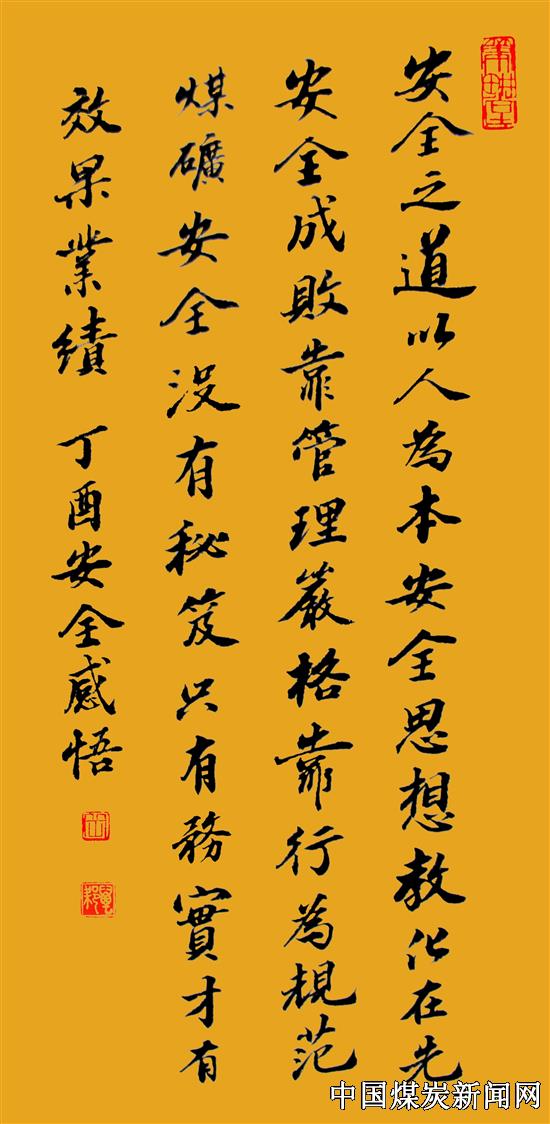 安全之道以人為本安全思想教化在先
安全成敗靠管理嚴格靠行為規范
煤礦安全没有秘笈只有務實才有
效果業績 丁酉安全感悟
中国煤炭新闻网